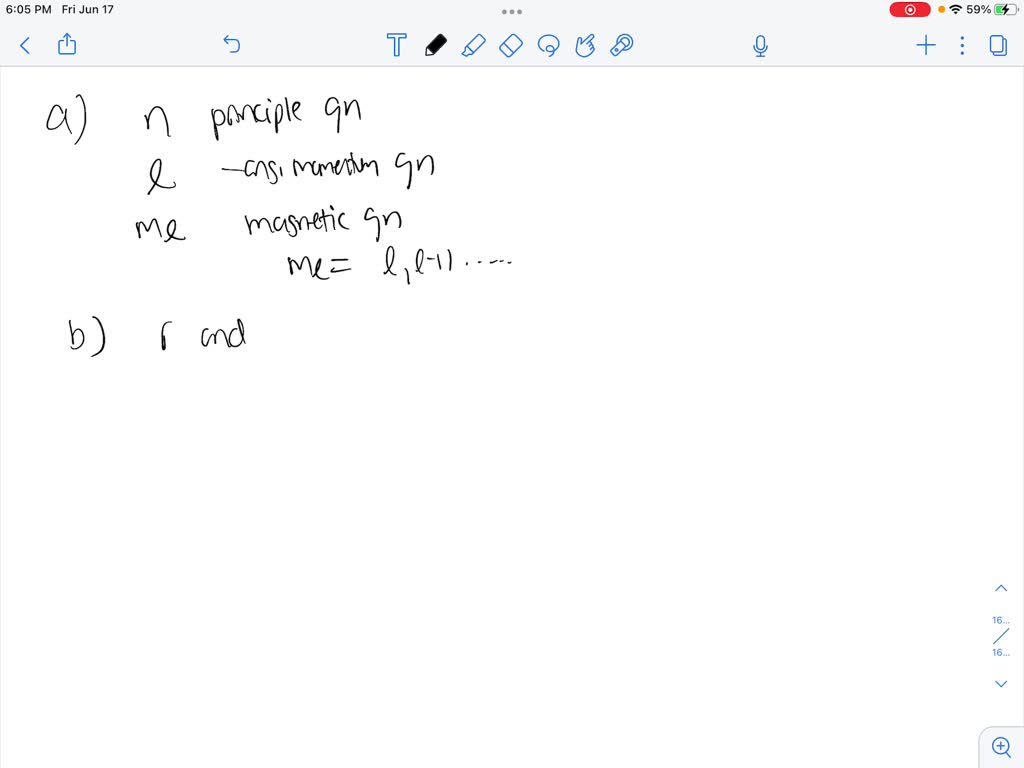 6:05 PM Fri Jun 17
59%
T
a) n principle qn
l - ang. momentum qn
ml magnetic qn
ml = l, l-1) ......
b) r and
16...
16...